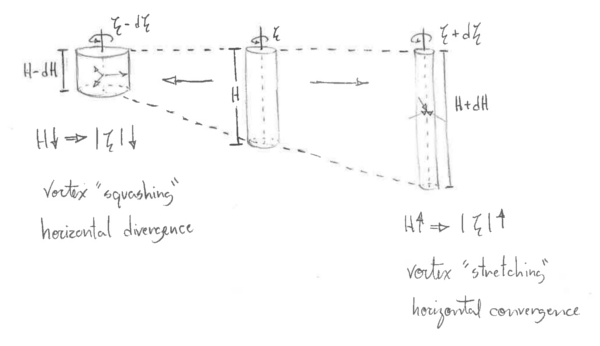 ξ-dξ
ξ
ξ+dξ
H-dH
H
H+dH
H↓ ⇒ |ξ|↓
vortex "squashing"
horizontal divergence
H↑ ⇒ |ξ|↑
vortex "stretching"
horizontal convergence